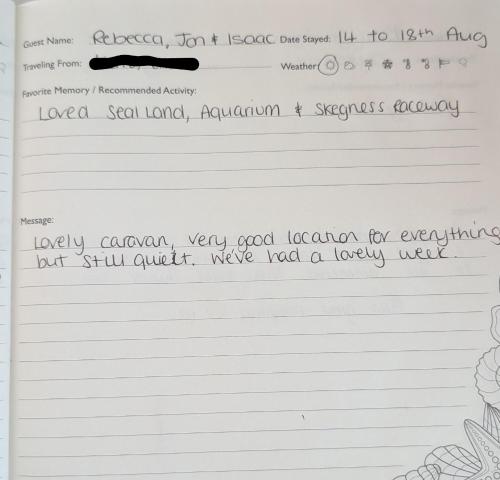 Guest Name: Rebecca, Jon & Isaac Date Stayed: 14 to 18th Aug
Traveling From: Weather
Favorite Memory / Recommended Activity:
Loved Seal Land, Aquarium & Skegness Raceway
Message:
Lovely caravan, very good location for everything
but still quiett. We've had a lovely week.